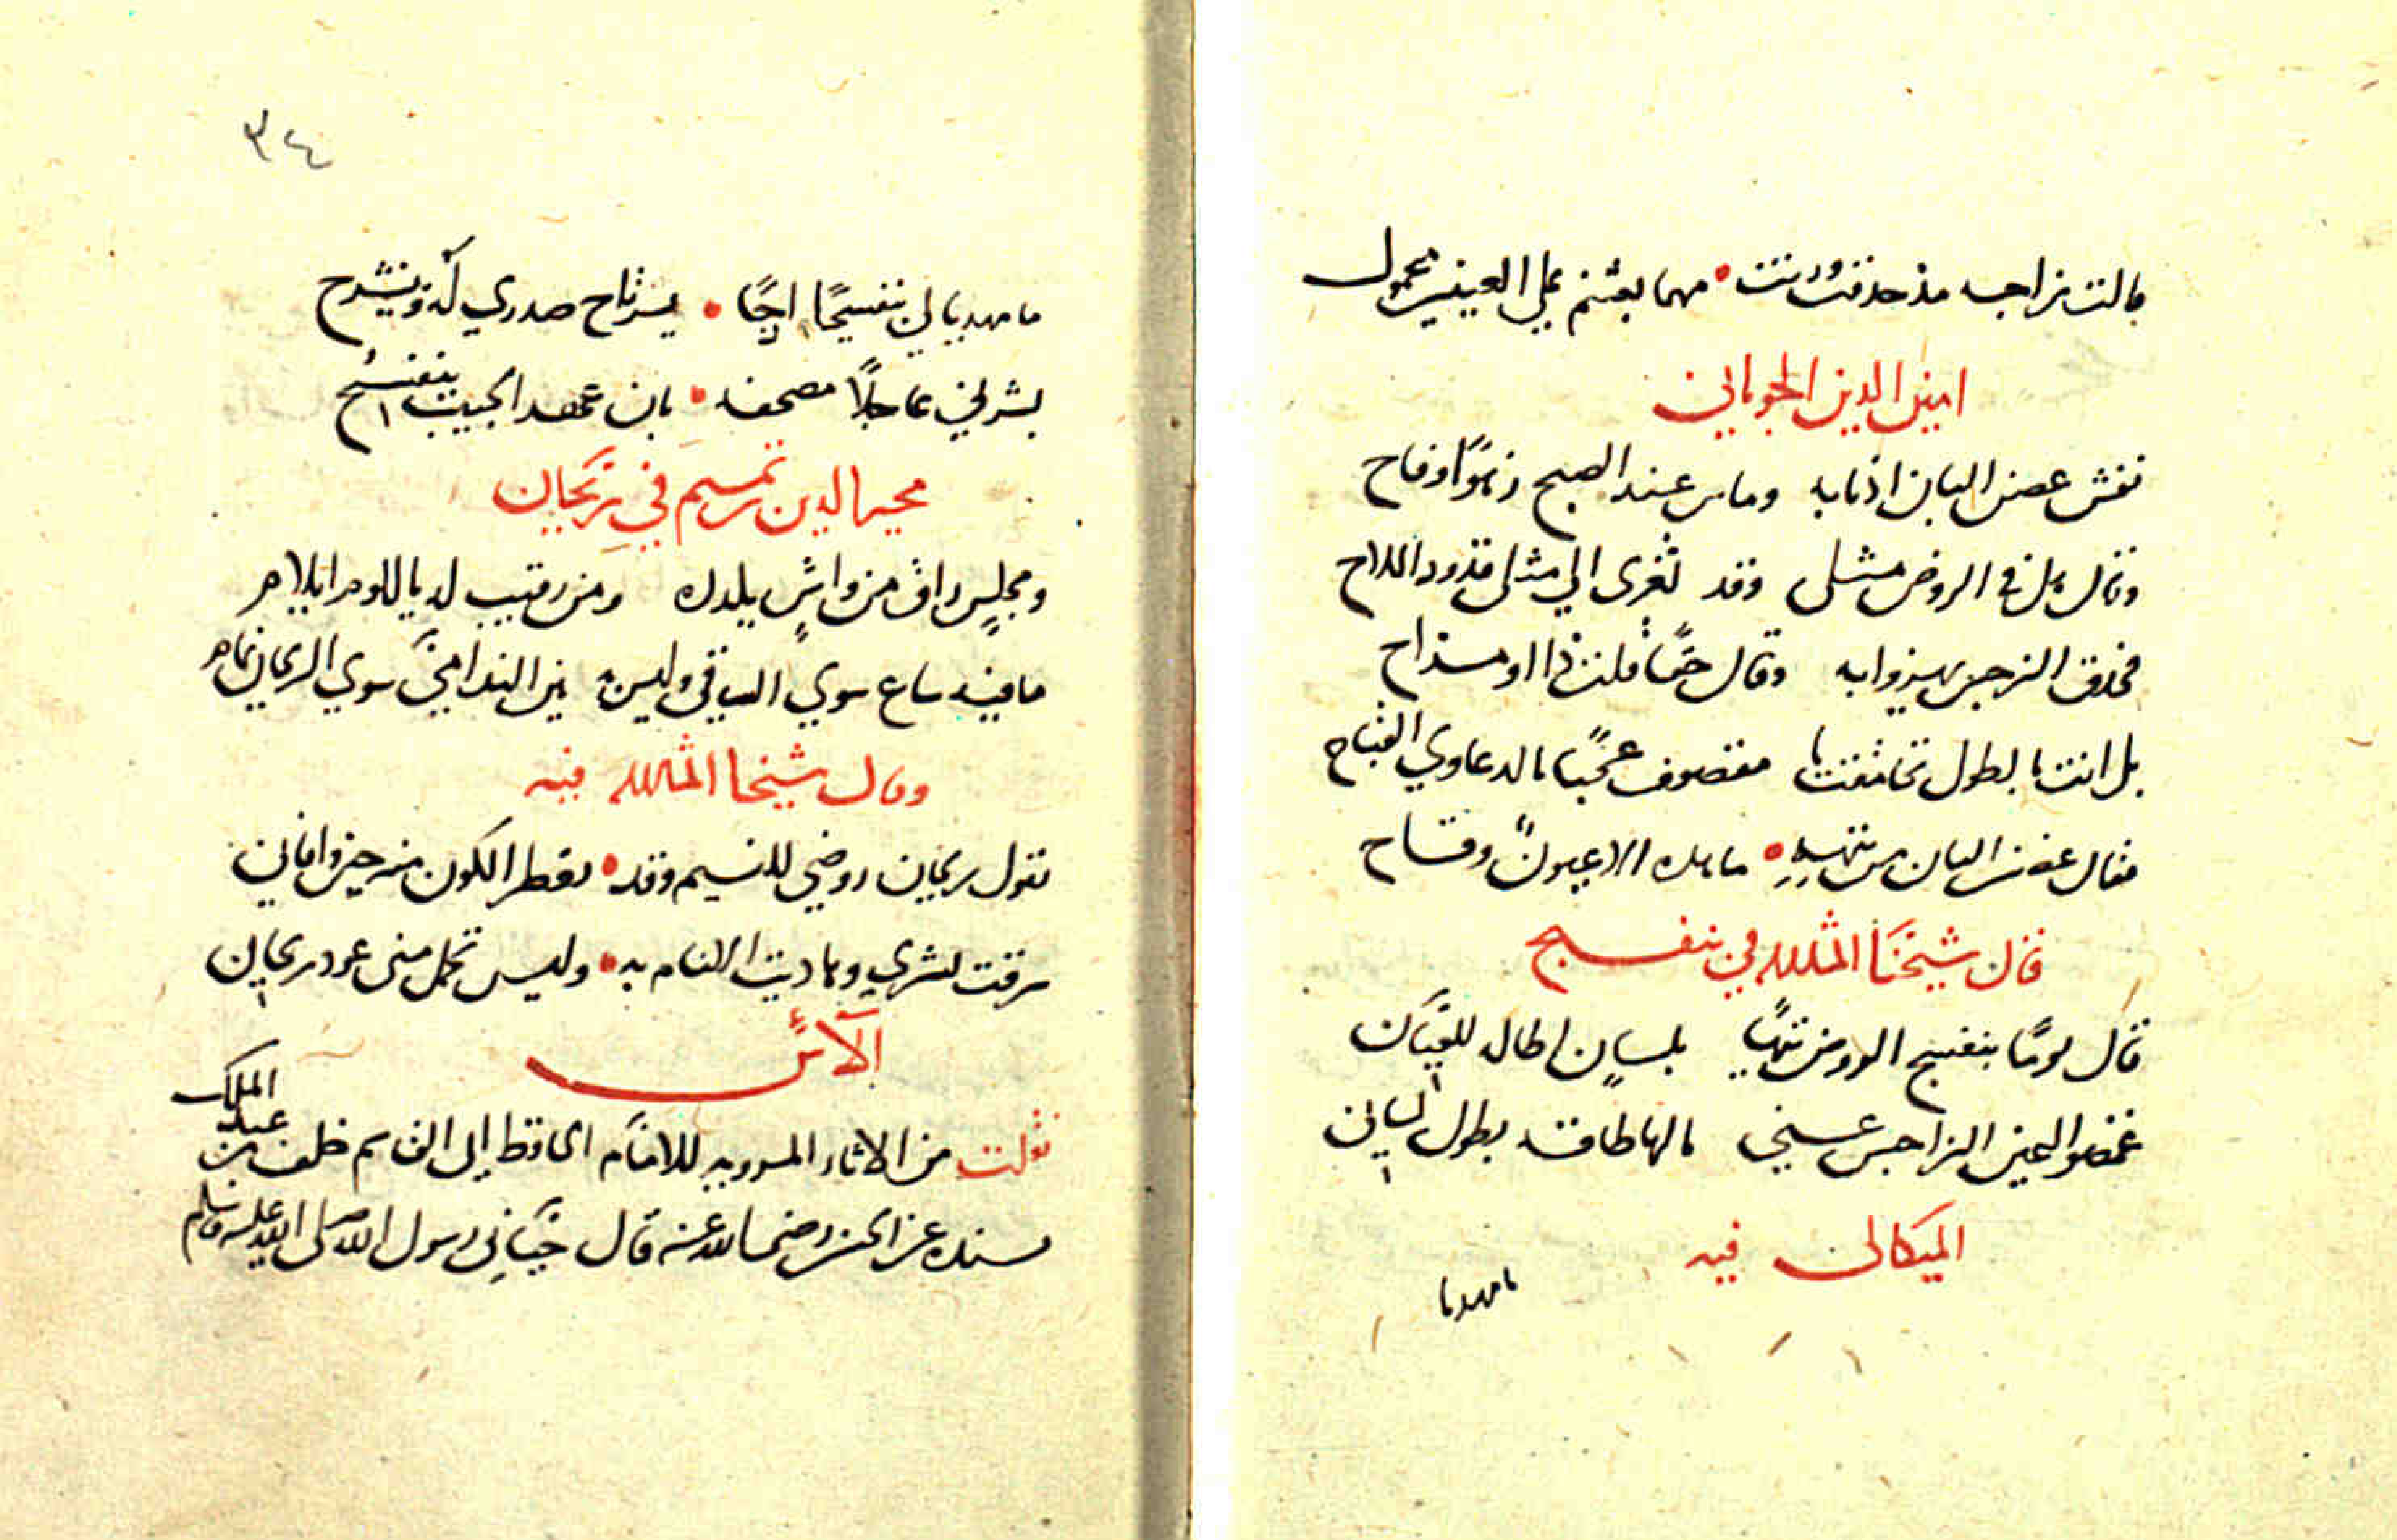 قالت نراجسه مذ حدقت ورنت • مهما بعثتم على العينين محمول
امين الدين الجوباني
نفش غصن البان اذنابه وماس عند الصبح زهوًا وفاح
وقال هل في الروض مثلى وقد تعزى الي مثلى قدود الملاح
فحدق النرجس يهزوا به وقال حقًا قلت ذا او مزاح
بل انت بالطول تحامقت يا مقصوف عجبًا بالدعاوي القباح
فقال غصن البان من تيهه • ما هذه الا عيونٌ وقاح
قال شيخنا في بنفسج
قال يومًا بنفسج الروض تيهًا بلسانٍ اطاله للعيان
غمضوا لعين النراجس عني مالها طاقة بطول لساني
الميكالى فيه
يا مهديا
٣٤
يا مهديا لي بنفسجًا ارجًا • يرتاح صدري له وينشرح
بشرني عاجلًا مصحفه • بان عقد الحبيب ينفسخ
مجير الدين بن تميم في ريحان
ومجلسٍ راق من واشٍ يكدره ومن رقيب له باللوم ايلام
ما فيه ساع سوي الساقي وليس به بين الندامى سوي الريحان نمام
وقال شيخنا فيه
تقول ريحان روضي للنسيم وقد • تعطر الكون من حين وافاني
سرقت نشري وناديت الانام به • وليس تحمل منى عود ريحان
نقلت من الاثار المروويه للامام الحافظ ابى القاسم خلف بن عبد الملك
بسنده عن الحسن رضى الله عنه قال حياني رسول الله صلى الله عليه وسلم